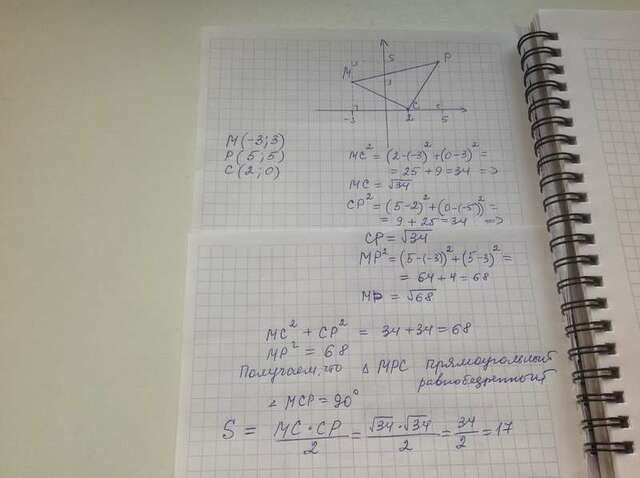 5
P
M
3
C
-3
2
5
M (-3; 3)
P (5; 5)
C (2; 0)
MC² = (2-(-3))² + (0-3)² =
= 25 + 9 = 34 =>
MC = √34
CP² = (5-2)² + (0-(-5))² =
= 9 + 25 = 34 =>
CP = √34
MP² = (5-(-3))² + (5-3)² =
= 64 + 4 = 68
MP = √68
MC² + CP² = 34 + 34 = 68
MP² = 68
Получаем, что △ MPC прямоугольный
равнобедренный
∠ MCP = 90°
S = MC · CP / 2 = √34 · √34 / 2 = 34 / 2 = 17